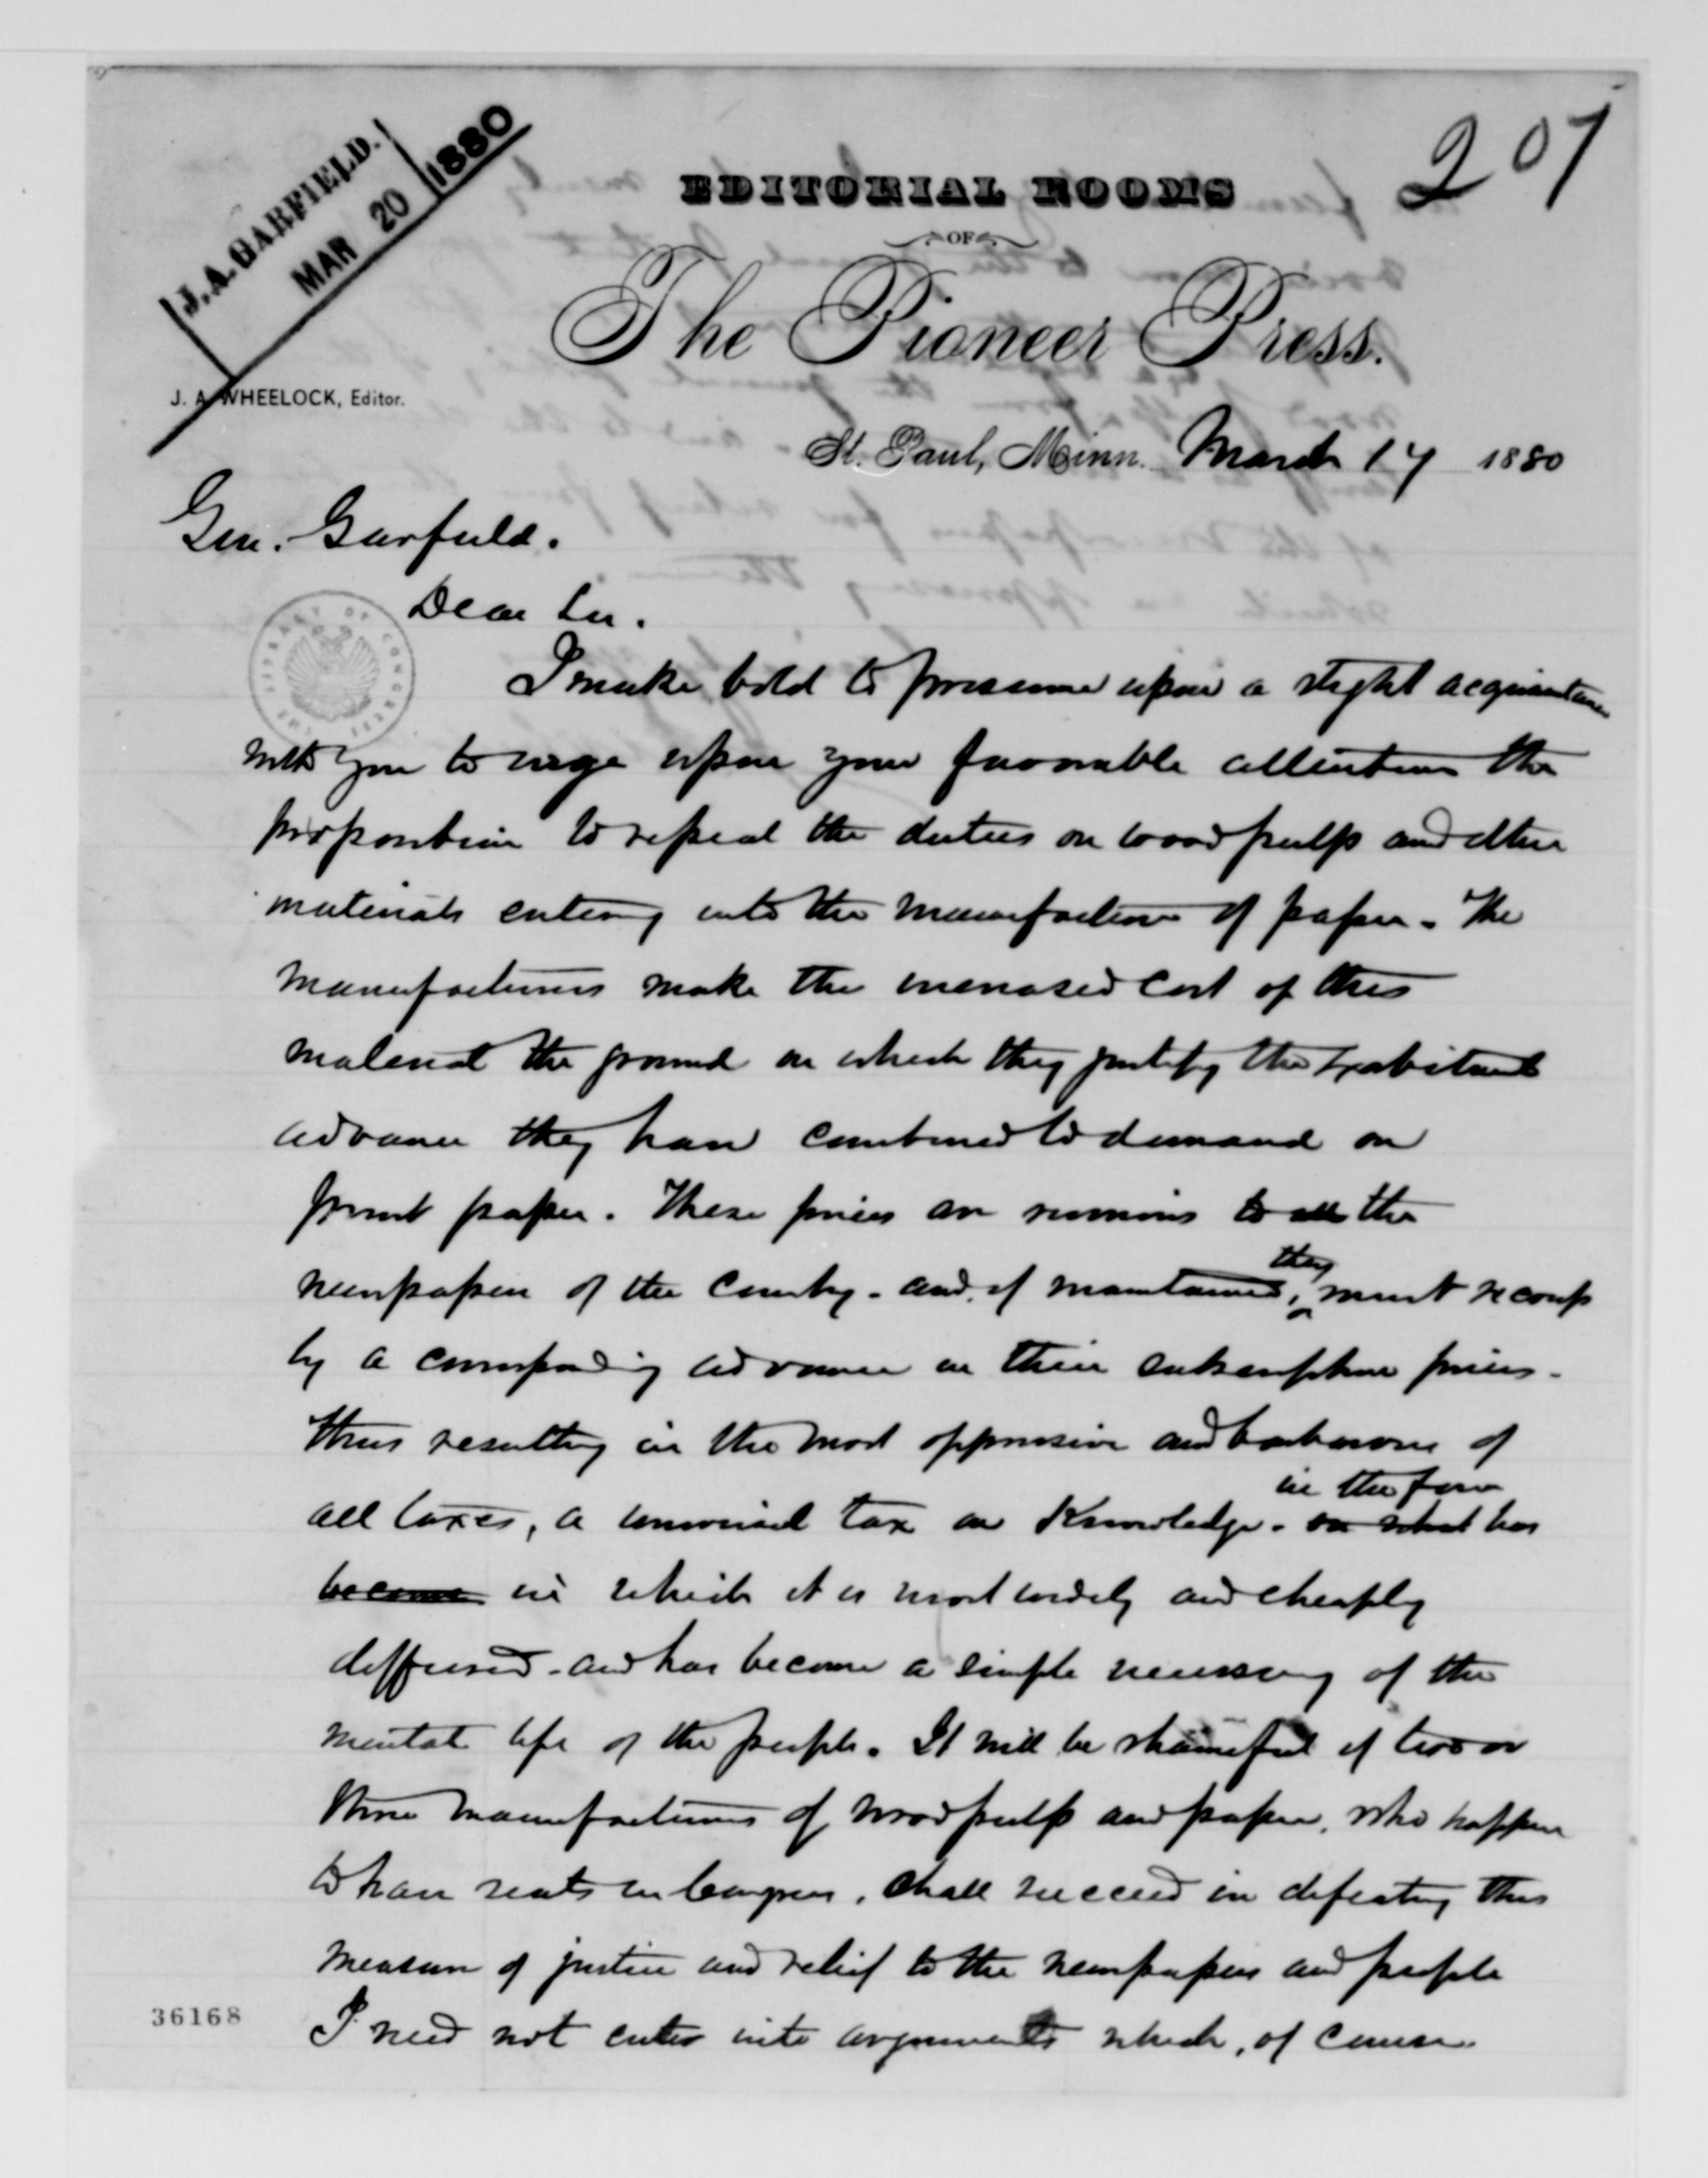 J. A. GARFIELD.
MAR 20 1880
207
EDITORIAL ROOMS
OF
The Pioneer Press.
J. A. WHEELOCK, Editor.
St. Paul, Minn. March 17 1880
Gen. Garfield.
Dear Sir.
I make bold to presume upon a slight acquaintance
with you to urge upon your favorable attention the
proposition to repeal the duties on wood pulp and other
materials entering into the manufacture of paper. The
manufacturers make the increased cost of this
material the ground on which they justify the exorbitant
advance they have combined to demand on
print paper. These prices are ruinous to all the
newspapers of the country. and if maintained, they must recoup
by a corresponding advance in their subscription prices.
thus resulting in the most oppressive and barbarous of
all taxes, a universal tax on Knowledge. in the form on what has
become in which it is most widely and cheaply
diffused. and has become a simple necessary of the
mental life of the people. It will be shameful if two or
three manufacturers of wood pulp and paper, who happen
to have seats in Congress, shall succeed in defeating this
measure of justice and relief to the newspapers and people
I need not enter into arguments which, of course
THE LIBRARY OF CONGRESS
36168